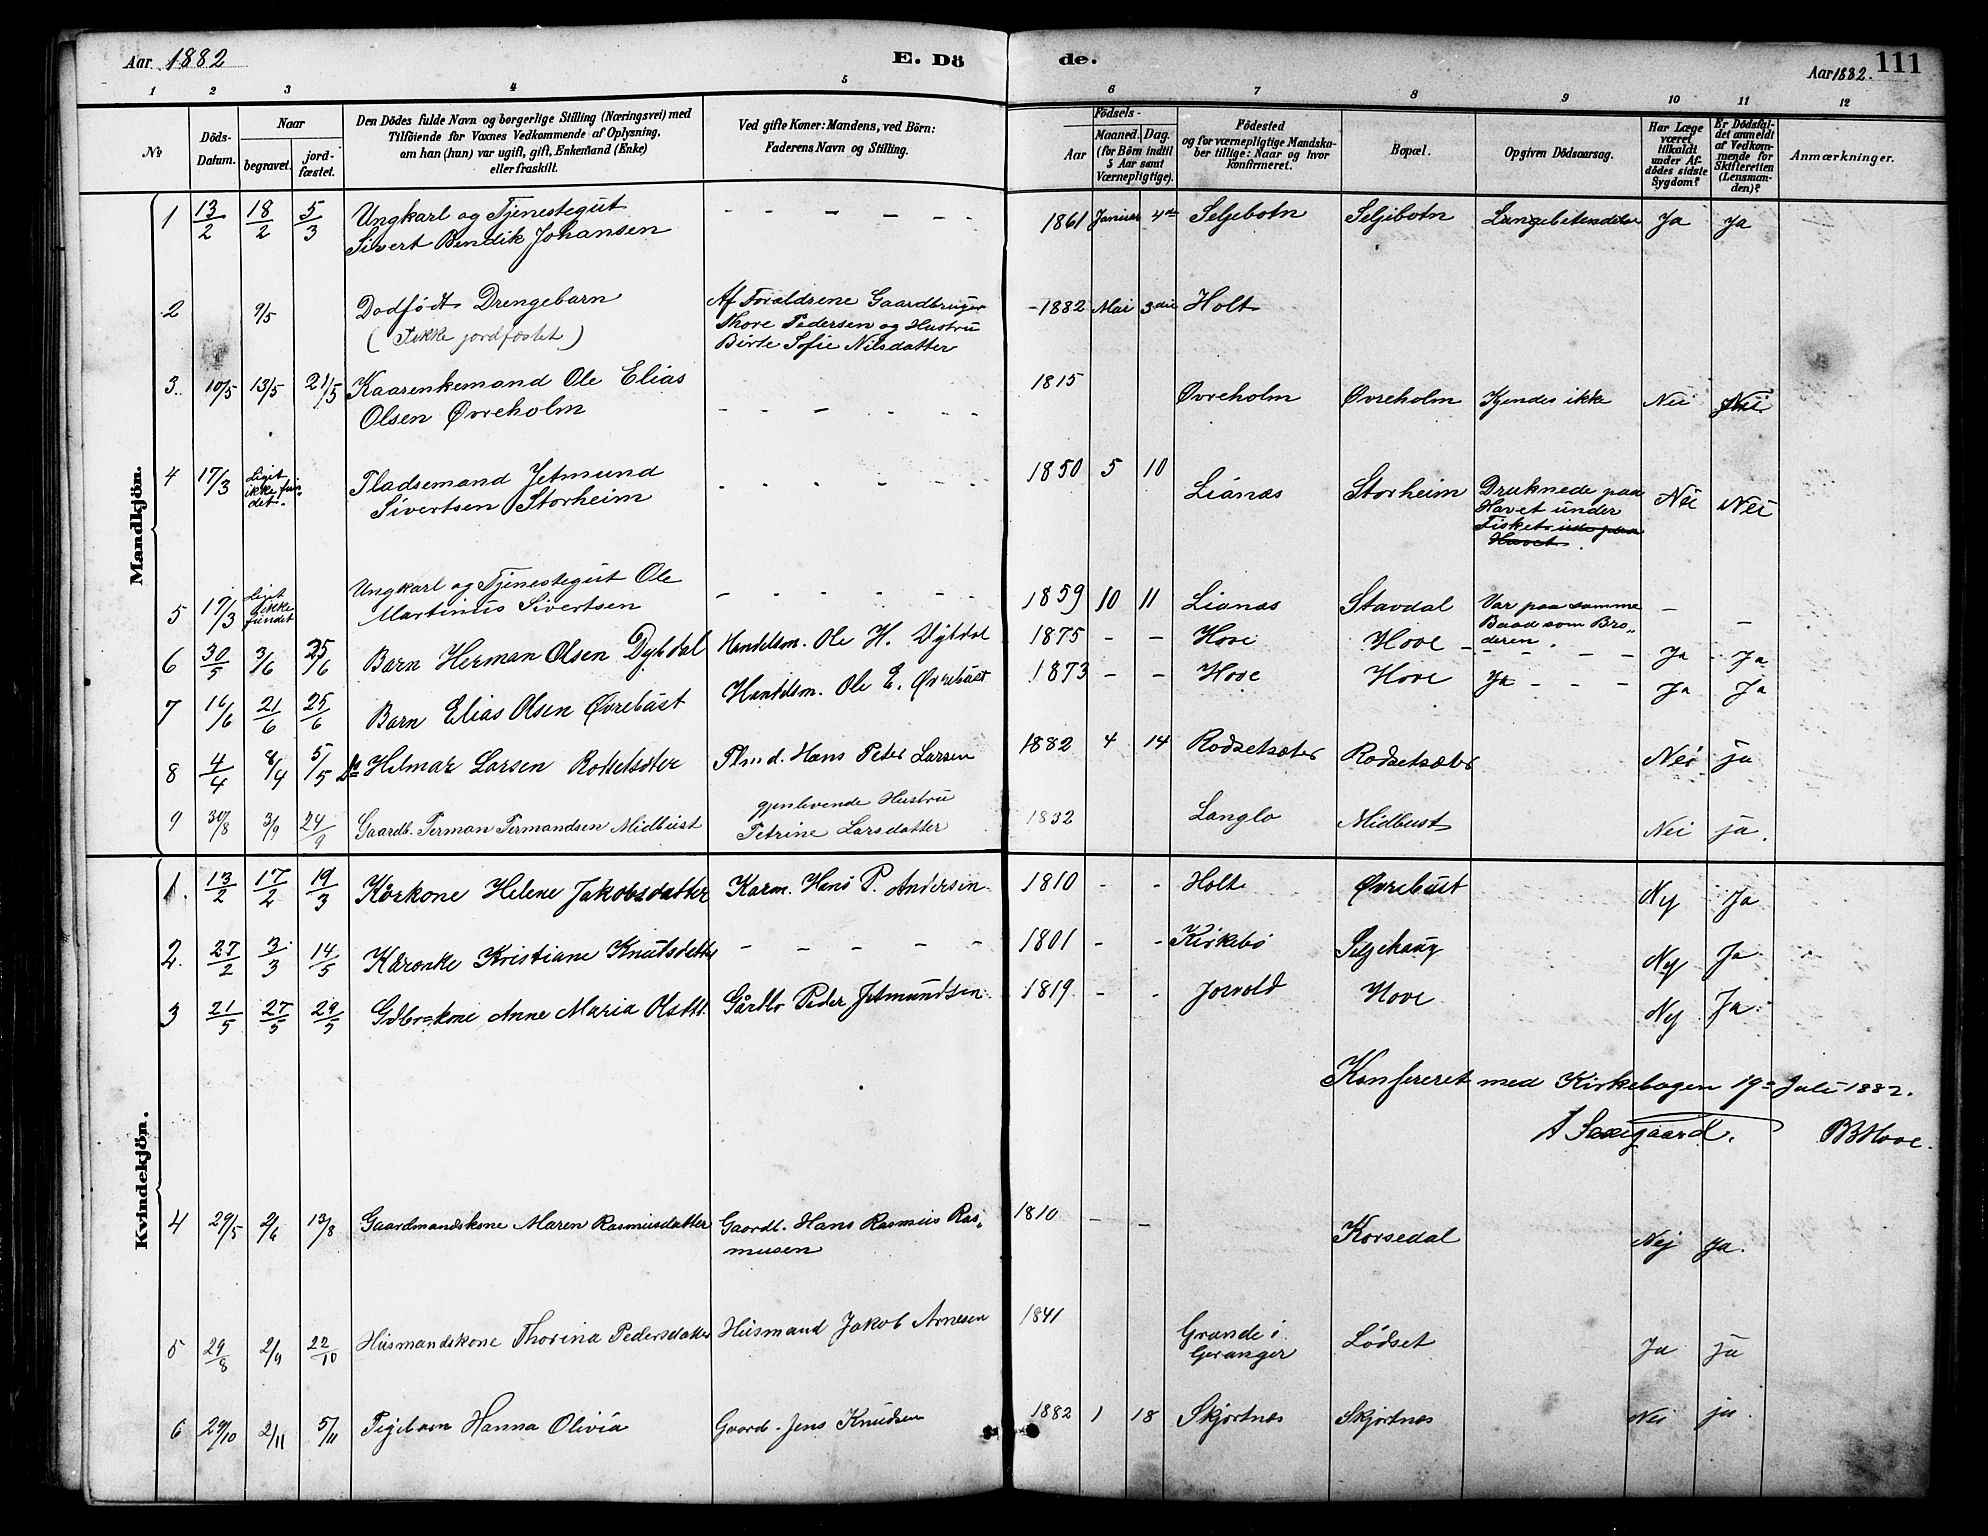 Aar 1882
E. Dö
de.
Aar 1882.
111
1 2 3 4 5 6 7 8 9 10 11 12
№
Döds-Datum.
Naar
begravet.
jordfæstet.
Den Dödes fulde Navn og borgerlige Stilling (Næringsvei) med
Tilföiende for Voxnes Vedkommende af Oplysning,
om han (hun) var ugift, gift, Enkemand (Enke)
eller fraskilt.
Ved gifte Koner: Mandens, ved Börn:
Faderens Navn og Stilling.
Födsels-
Aar
Maaned. Dag.
(for Börn indtil
5 Aar samt
Værnepligtige).
Födested
og for værnepligtige Mandska-
ber tillige: Naar og hvor
konfirmeret.
Bopæl.
Opgiven Dödsaarsag.
Har Læge
været
tilkaldt
under Af-
dödes sidste
Sygdom?
Er Dödsfal-
det anmeldt
af Vedkom-
mende for
Skifteretten
(Lensman-
den)?
Anmærkninger.
Mandkjön.
1 13/2 18/2 5/3 Ungkarl og Tjenestegut - - - - - - 1861 Januar 4de Seljebotn Seljebotn Lungebetendelse Ja Ja
Sivert Bendik Johansen
2 9/5 Dødfødt Drengebarn Af Foraldrene Gaardbruger - 1882 Mai 3die Holt
(Ikke jordfæstet) Thore Pedersen og Hustru
Birte Sofie Nilsdatter
3. 10/5 13/5 21/5 Kaarenkemand Ole Elias - - - - - - 1815 Øvreholm Øvreholm Kjendes ikke Nei Nei
Olsen Øvreholm
4 17/3 Liget Pladsemand Jetmund - - - - - - 1850 5 10 Lianæs Storheim Druknede paa Nei Nei
ikke fun- Sivertsen Storheim Havet under
det. Fisket ude paa
Havet.
5 17/3 Liget Ungkarl og Tjenestegut Ole - - - - - - 1859 10 11 Lianæs Stavdal Var paa samme - -
ikke Martinus Sivertsen Baad som Bro-
fundet deren.
6 30/5 3/6 25/6 Barn Herman Olsen Dybdal Handelsm. Ole H. Dybdal 1875 - - Hove Hove - - - - Ja Ja
7 16/6 21/6 25/6 Barn Elias Olsen Øvrebust Handelsm. Ole E. Øvrebust 1873 - - Hove Hove Ja - - - Ja Ja
8 4/4 8/4 5/5 Do Helmar Larsen Rødsetsæter Plmd. Hans Peter Larsen 1882 4 14 Rødsetsæter Rødsetsæter Nei ja
9 30/8 3/9 24/9 Gaardb. Ferman Fermandsen Midbust gjenlevende Hustru 1832 Langlo Midbust Nei ja.
Petrine Larsdatter
Kvindekjön.
1. 13/2 17/2 19/3 Kårkone Helene Jakobsdatter Karm. Hans P. Andersen 1810 - - Holt Øvrebust Nej Ja
2. 27/2 3/3 14/5 Kåronke Kristiane Knutsdatter - - - - - 1801 - - Kirkebø Seljehaug Nej Ja
3 21/5 27/5 29/5 Gdbrskone Anne Maria Olsdtt. Gårdbr Peder Jetmundsen 1819 - - Jorvold Hove Nej Ja
Konfereret med Kirkebogen 19de Juli 1882.
A Saxegaard. PBHove.
4 29/5 2/6 13/8 Gaardmandskone Maren Rasmusdatter Gaardb. Hans Rasmus Ras- 1810 - - Korsedal Nej Ja.
musen
5 29/8 2/9 22/10 Husmandskone Thorina Pedersdatter Husmand Jakob Arnesen 1841 Grande i Lødset Ja ja
Geranger
6 29/10 2/11 5/11 Pigebarn Hanna Olivia Gaardb. Jens Knudsen 1882 1 18 Skjortnæs Skjortnæs Nei ja.